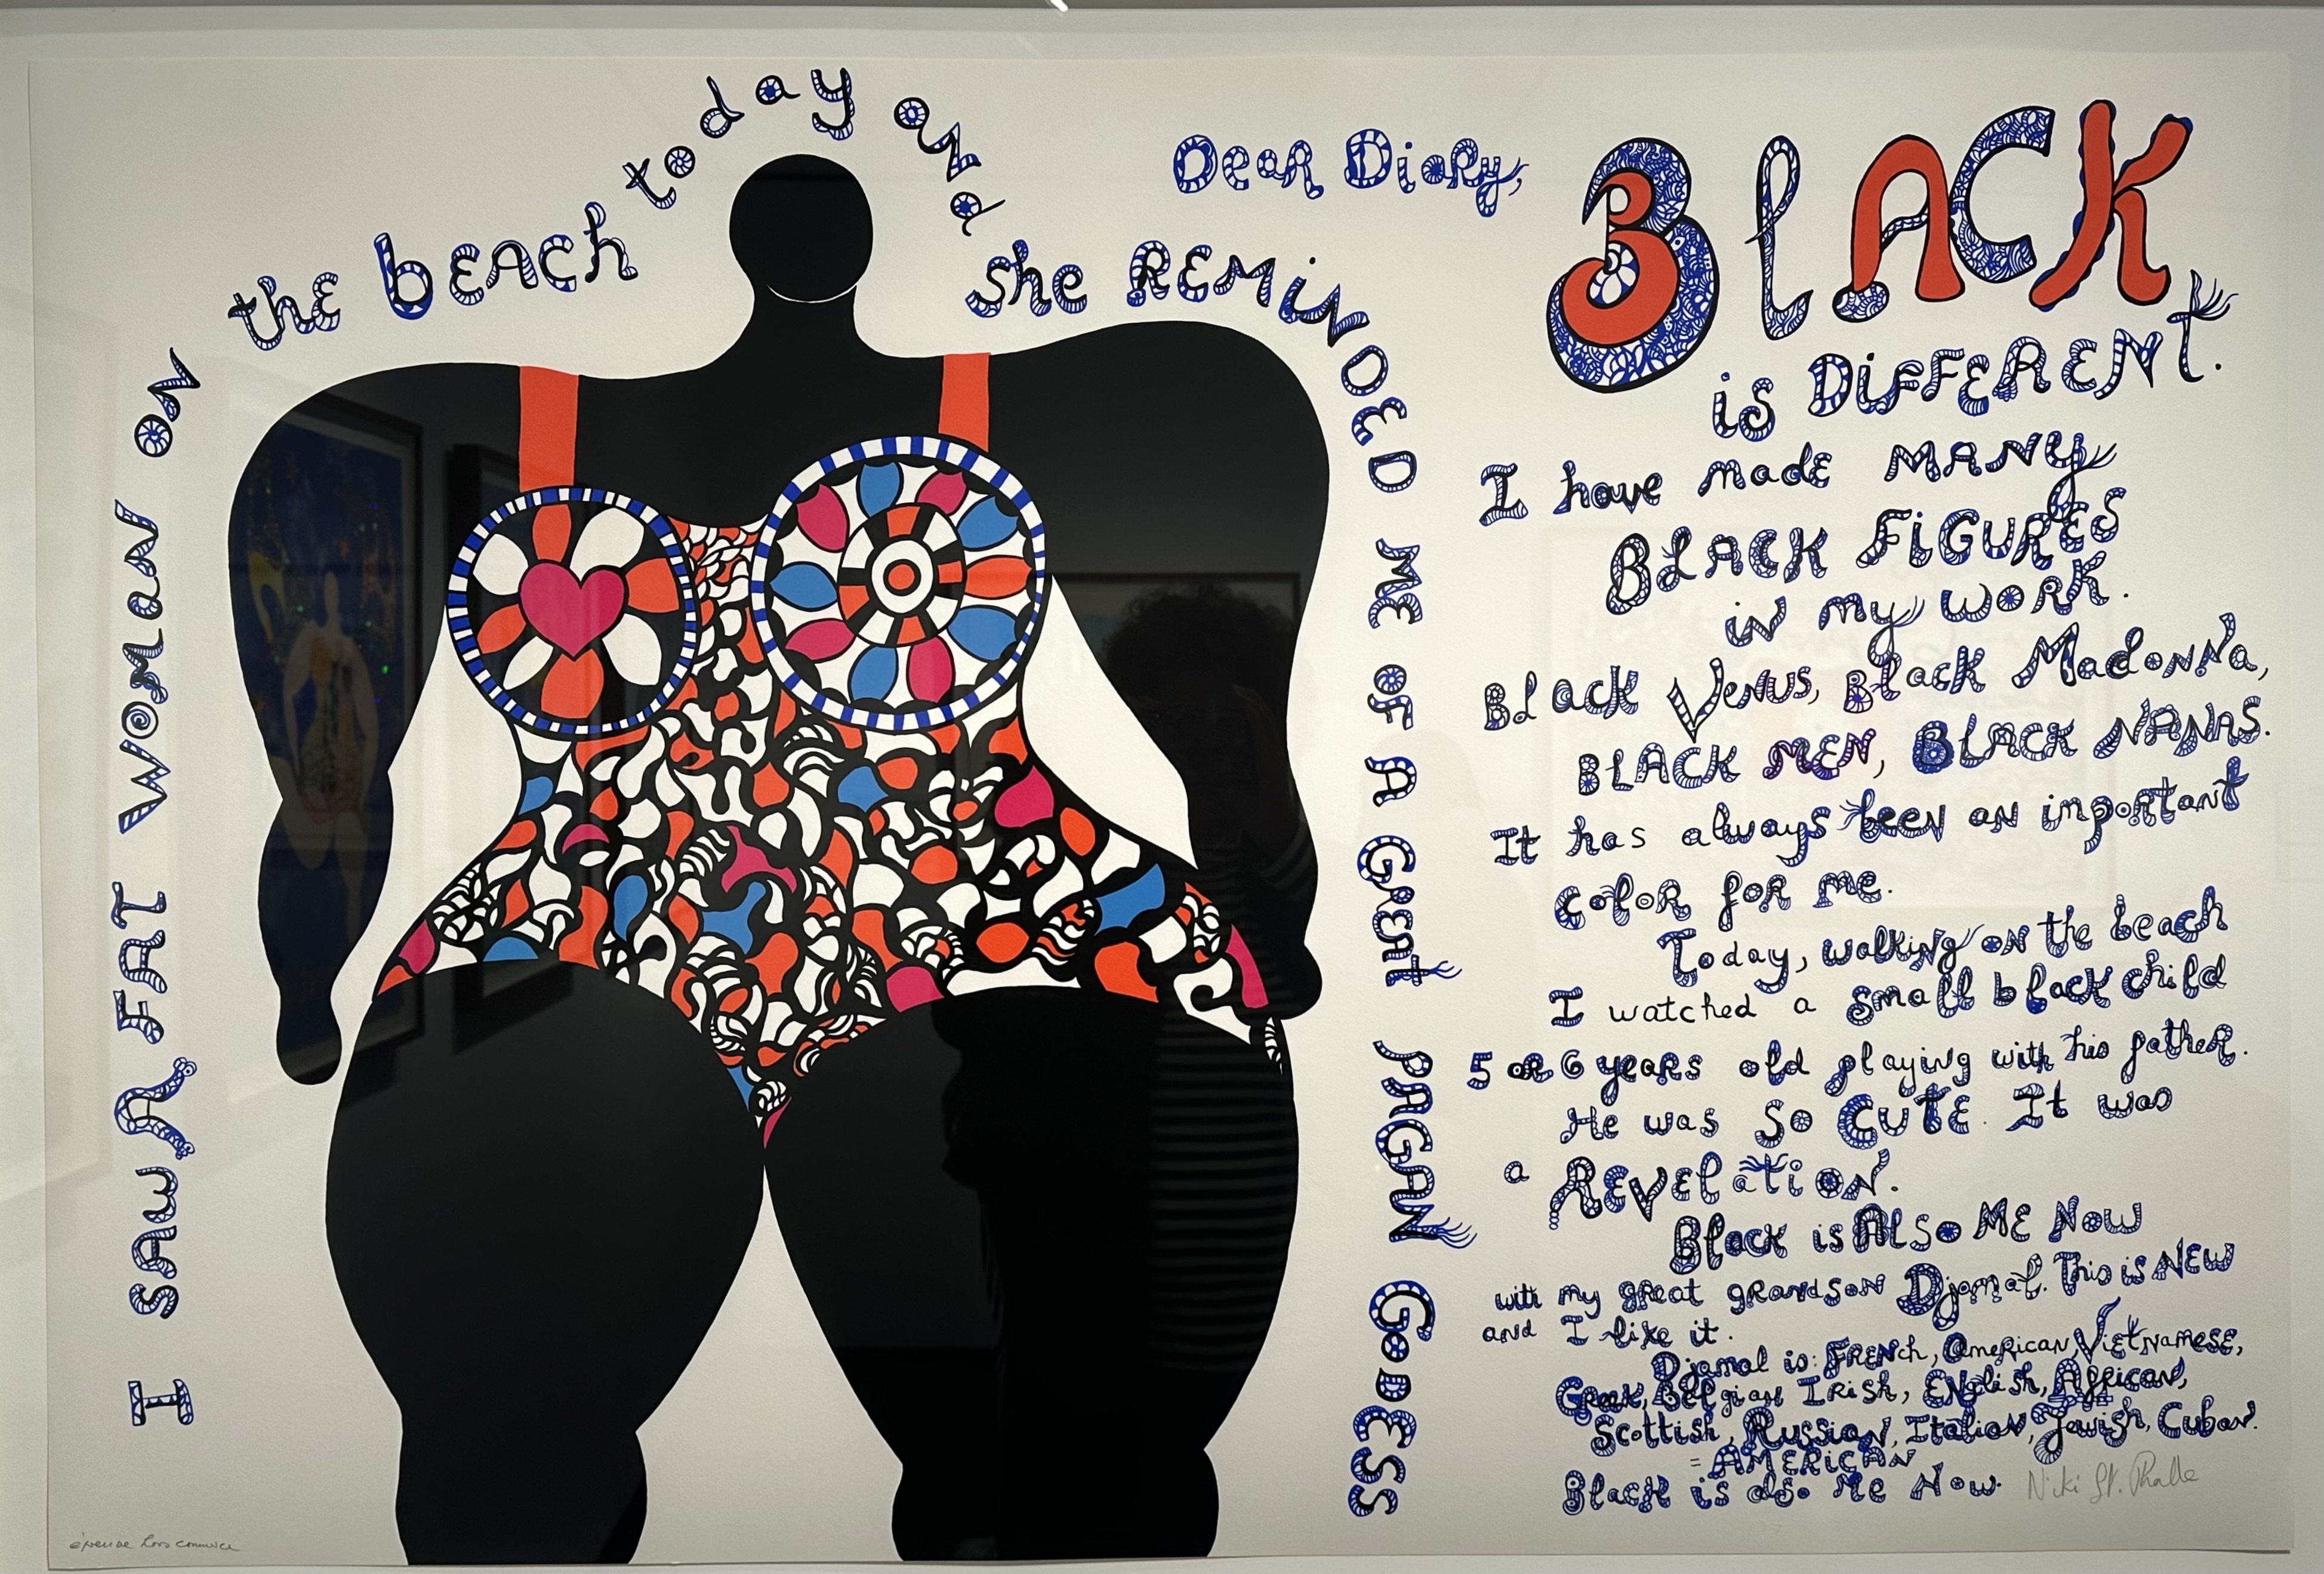 I SAW A FAT WOMAN ON the bEACH today aNd she REMiNDED ME OF A GREAT PAGAN GODESS
Dear Diary,
BlACK
is DiFFERENt.
I have made MANy
BLACK FiGURES
iN my woRK.
Black VeNUS, Black MadoNNa,
BLACK MEN, BLACK NANAS.
It has always been an important
coloR foR me.
Today, walking on the beach
I watched a small black child
5 oR 6 yeaRs old playing with his fatheR.
He was So CUTE. It was
a REVElatioN.
Black is AlSo ME Now
with my gReat gRandsoN Djamal. This is NEW
and I like it.
Djamal is: FRENch, AmeRicaN, ViEtNamESE,
Greek, Belgian IRish, ENglish, AfRicaN,
Scottish, RussiaN, ItaliaN, Jewish, CubaN.
= AMERiCAN
Black is also Me Now.
Niki St. Phalle
épreuve hors commerce